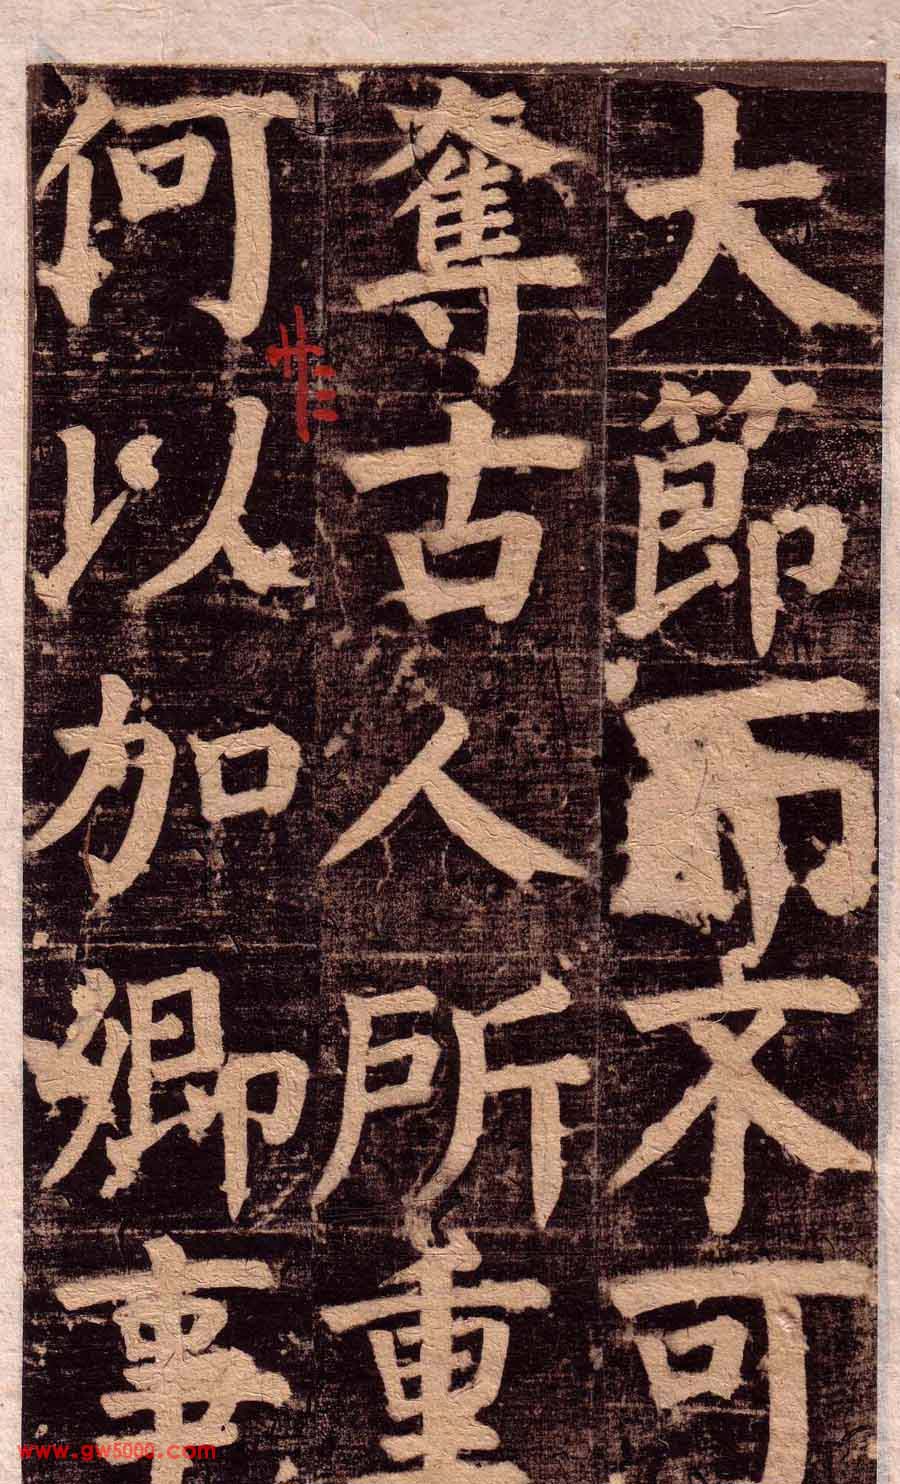 大節而不可
奪古人所重
何以加卿事
www.gw5000.com